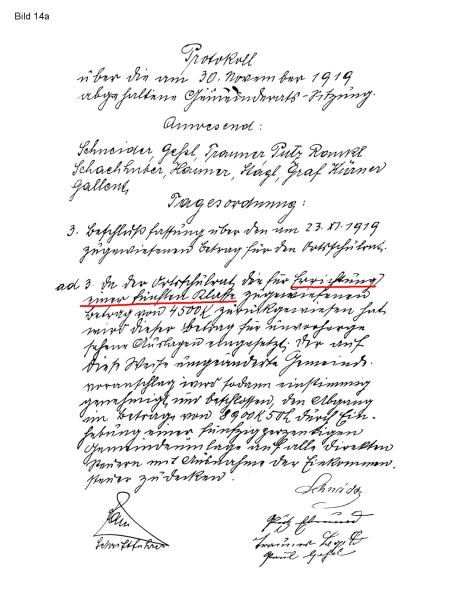 Bild 14a
Protokoll
über die am 30. November 1919
abgehaltene Gemeinderats-Sitzung.
Anwesend:
Schneider Gessl, Trauner Putz Ramkl
Schachhuber, Hanner, Hagl, Graf Hürner
Gallent
Tagesordnung:
3. Beschlußfassung über den am 23. XI. 1919
zugewiesenen Betrag für den Ortsschulrat.
ad 3. Da der Ortsschulrat die für Errichtung
einer fünften Klasse zugewiesenen
Betrag von 4500 K zurückgewiesen hat
wird dieser Betrag für unvorherge
sehene Auslagen eingesetzt. Der auf
diese Weise umgeänderte Gemeinde
voranschlag wird sodann einstimmig
genehmigt und beschlossen, den Abgang
im Betrage von 8900 K 50 h durch Ein-
hebung einer fünfzigperzentigen
Gemeindeumlage auf alle direkten
Steuern mit Ausnahme der Einkommen-
steuer zu decken.
Schneider
Putz Edmund
Schriftführer
Trauner
Paul Gessl